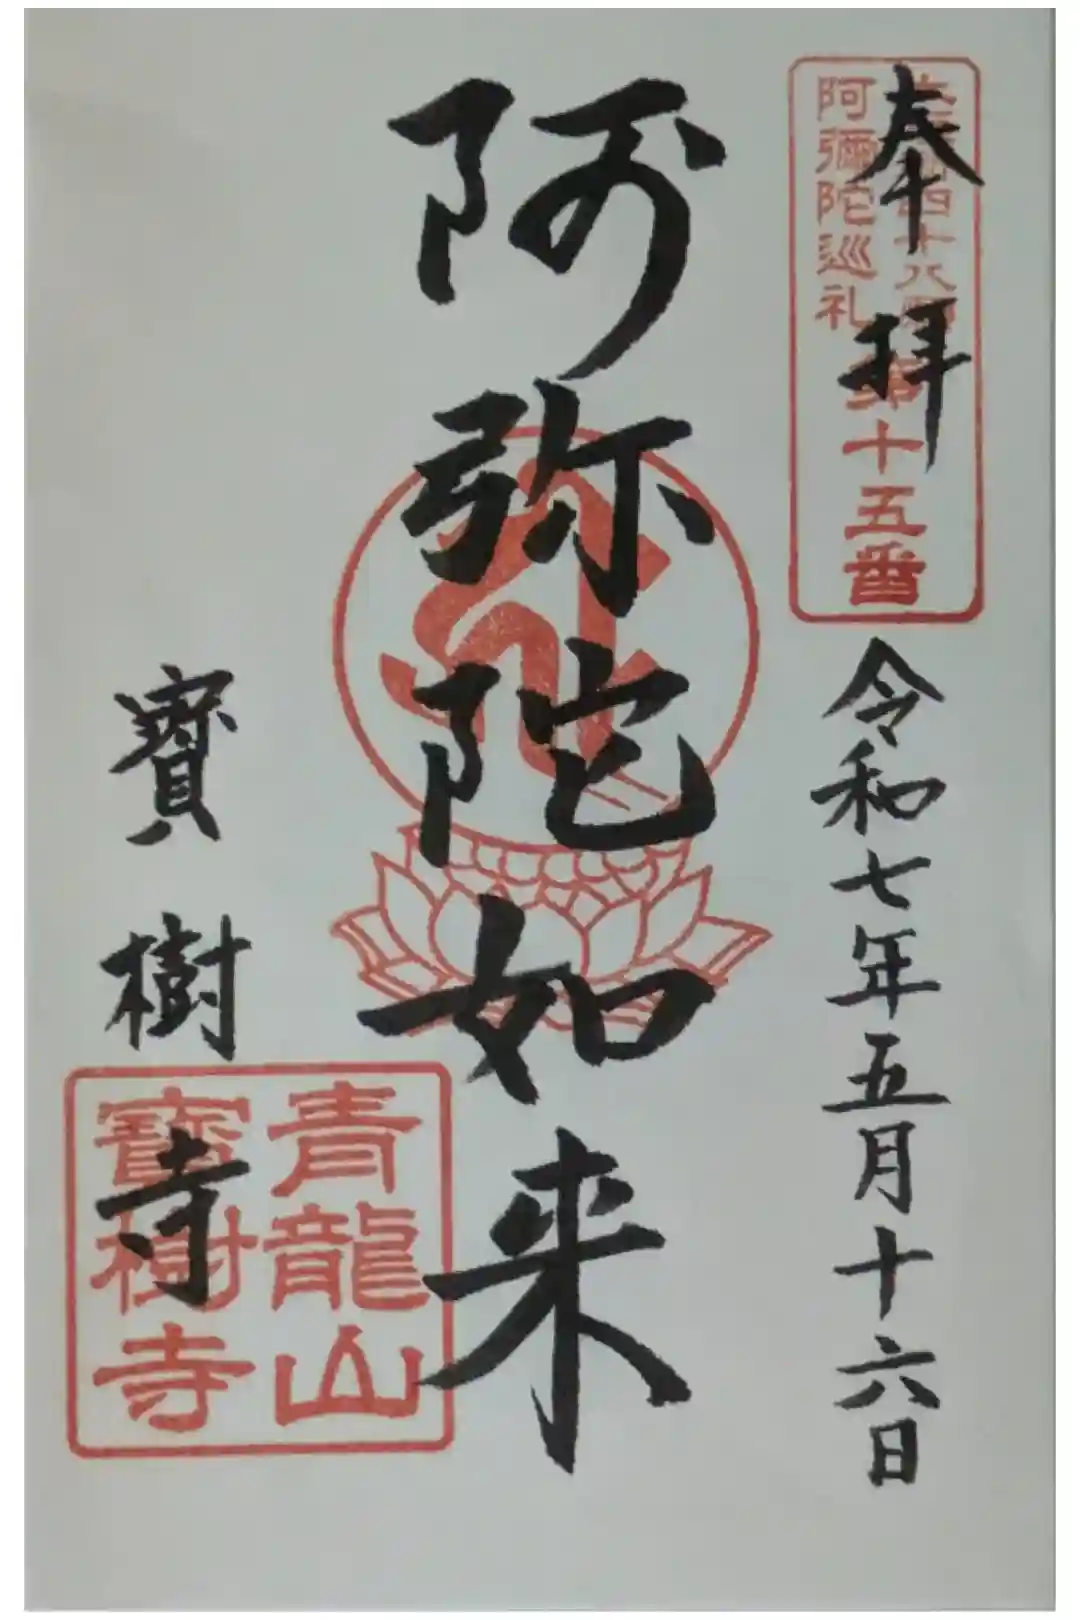 奉拝
四十八願
阿彌陀巡礼
第十五番
令和七年五月十六日
阿弥陀如来
寳樹寺
青龍山
寳樹寺